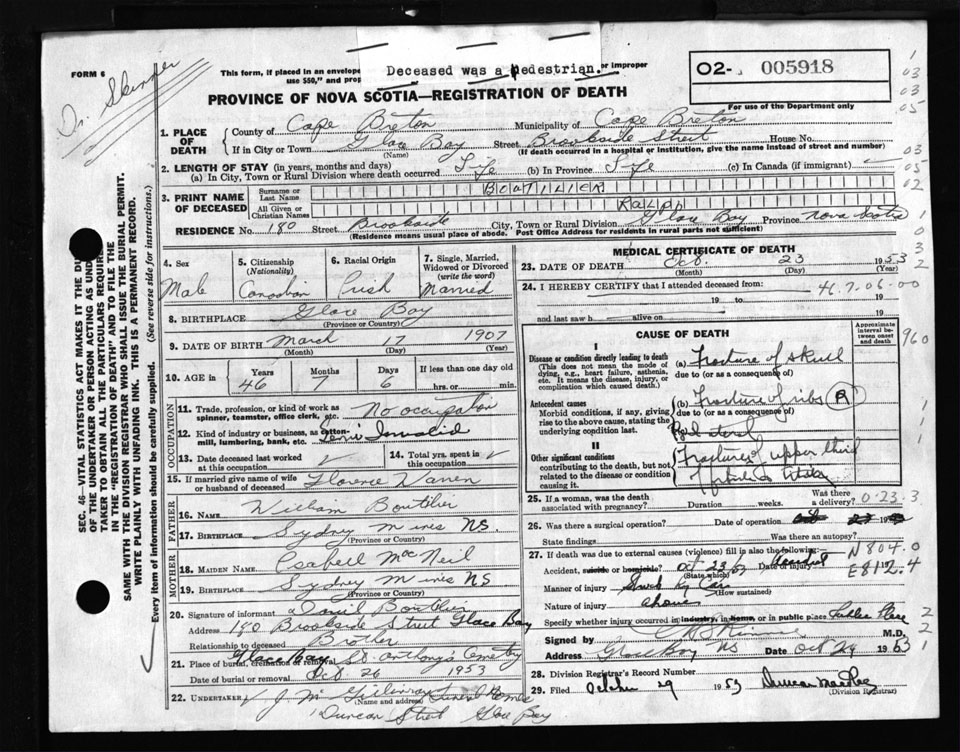 FORM 6
Dr. Skinner
This form, if placed in an envelope
use $50," and prop
Deceased was a pedestrian.
or improper
PROVINCE OF NOVA SCOTIA—REGISTRATION OF DEATH
O2- 005918
For use of the Department only
1. PLACE OF DEATH
County of Cape Breton Municipality of Cape Breton
If in City or Town Glace Bay Street Brookside Street House No.
(Name) (If death occurred in a hospital or institution, give the name instead of street and number)
2. LENGTH OF STAY (in years, months and days)
(a) In City, Town or Rural Division where death occurred Life (b) In Province Life (c) In Canada (if immigrant)
3. PRINT NAME OF DECEASED
Surname or Last Name BOUTILIER
All Given or Christian Names RALPH
RESIDENCE No. 180 Street Brookside City, Town or Rural Division Glace Bay Province Nova Scotia
(Residence means usual place of abode. Post Office Address for residents in rural parts not sufficient)
4. Sex
Male
5. Citizenship
(Nationality)
Canadian
6. Racial Origin
Irish
7. Single, Married, Widowed or Divorced
(write the word)
Married
8. BIRTHPLACE Glace Bay
(Province or Country)
9. DATE OF BIRTH March 17 1907
(Month) (Day) (Year)
10. AGE in
Years 46
Months 7
Days 6
If less than one day old
hrs. or min.
OCCUPATION
11. Trade, profession, or kind of work as spinner, teamster, office clerk, etc. No occupation
12. Kind of industry or business, as cotton-mill, lumbering, bank, etc. Semi Invalid
13. Date deceased last worked at this occupation
14. Total yrs. spent in this occupation
15. If married give name of wife or husband of deceased Florence Warren
FATHER
16. Name William Boutilier
17. Birthplace Sydney Mines NS.
(Province or Country)
MOTHER
18. MAIDEN NAME Isabell MacNeil
19. BIRTHPLACE Sydney Mines NS
(Province or Country)
20. Signature of informant Daniel Boutilier
Address 180 Brookside Street Glace Bay
Relationship to deceased Brother
21. Place of burial, cremation or removal Glace Bay St Anthony's Cemetery
Date of burial or removal Oct 26 1953
22. UNDERTAKER J. M. Funeral Homes
(Name and address)
Duncan Street Glace Bay
MEDICAL CERTIFICATE OF DEATH
23. DATE OF DEATH Oct. 23 1953
(Month) (Day) (Year)
24. I HEREBY CERTIFY that I attended deceased from:
19 to 19
and last saw h alive on 19
46.7.06-00
CAUSE OF DEATH
Approximate interval between onset and death
I
Disease or condition directly leading to death
(This does not mean the mode of dying, e.g., heart failure, asthenia, etc. It means the disease, injury, or complication which caused death.)
(a) Fracture of skull
due to (or as a consequence of)
Antecedent causes
Morbid conditions, if any, giving rise to the above cause, stating the underlying condition last.
(b) Fracture of ribs (R)
due to (or as a consequence of)
II
Other significant conditions
contributing to the death, but not related to the disease or condition causing it.
Fracture of upper third
25. If a woman, was the death associated with pregnancy? Duration weeks. Was there a delivery?
0-23.3
26. Was there a surgical operation? Date of operation
State findings Was there an autopsy?
27. If death was due to external causes (violence) fill in also the following:
Accident, suicide or homicide? Accident Date of injury Oct 23/53
(State which)
Manner of injury Struck by Car
(How sustained)
Nature of injury above
Specify whether injury occurred in industry, in home, or in public place Public Place
Signed by M.D.
Address Glace Bay NS Date Oct 29 1953
28. Division Registrar's Record Number
29. Filed October 29 1953
(Division Registrar)
N804.0
E812.4
960
SEC. 46—VITAL STATISTICS ACT MAKES IT THE DU
OF THE UNDERTAKER OR PERSON ACTING AS UND
TAKER TO OBTAIN ALL THE PARTICULARS REQUIRE
IN THE "REGISTRATION OF DEATH" AND TO FILE THE
SAME WITH THE DIVISION REGISTRAR WHO SHALL ISSUE THE BURIAL PERMIT.
WRITE PLAINLY WITH UNFADING INK. THIS IS A PERMANENT RECORD.
Every item of information should be carefully supplied. (See reverse side for instructions.)